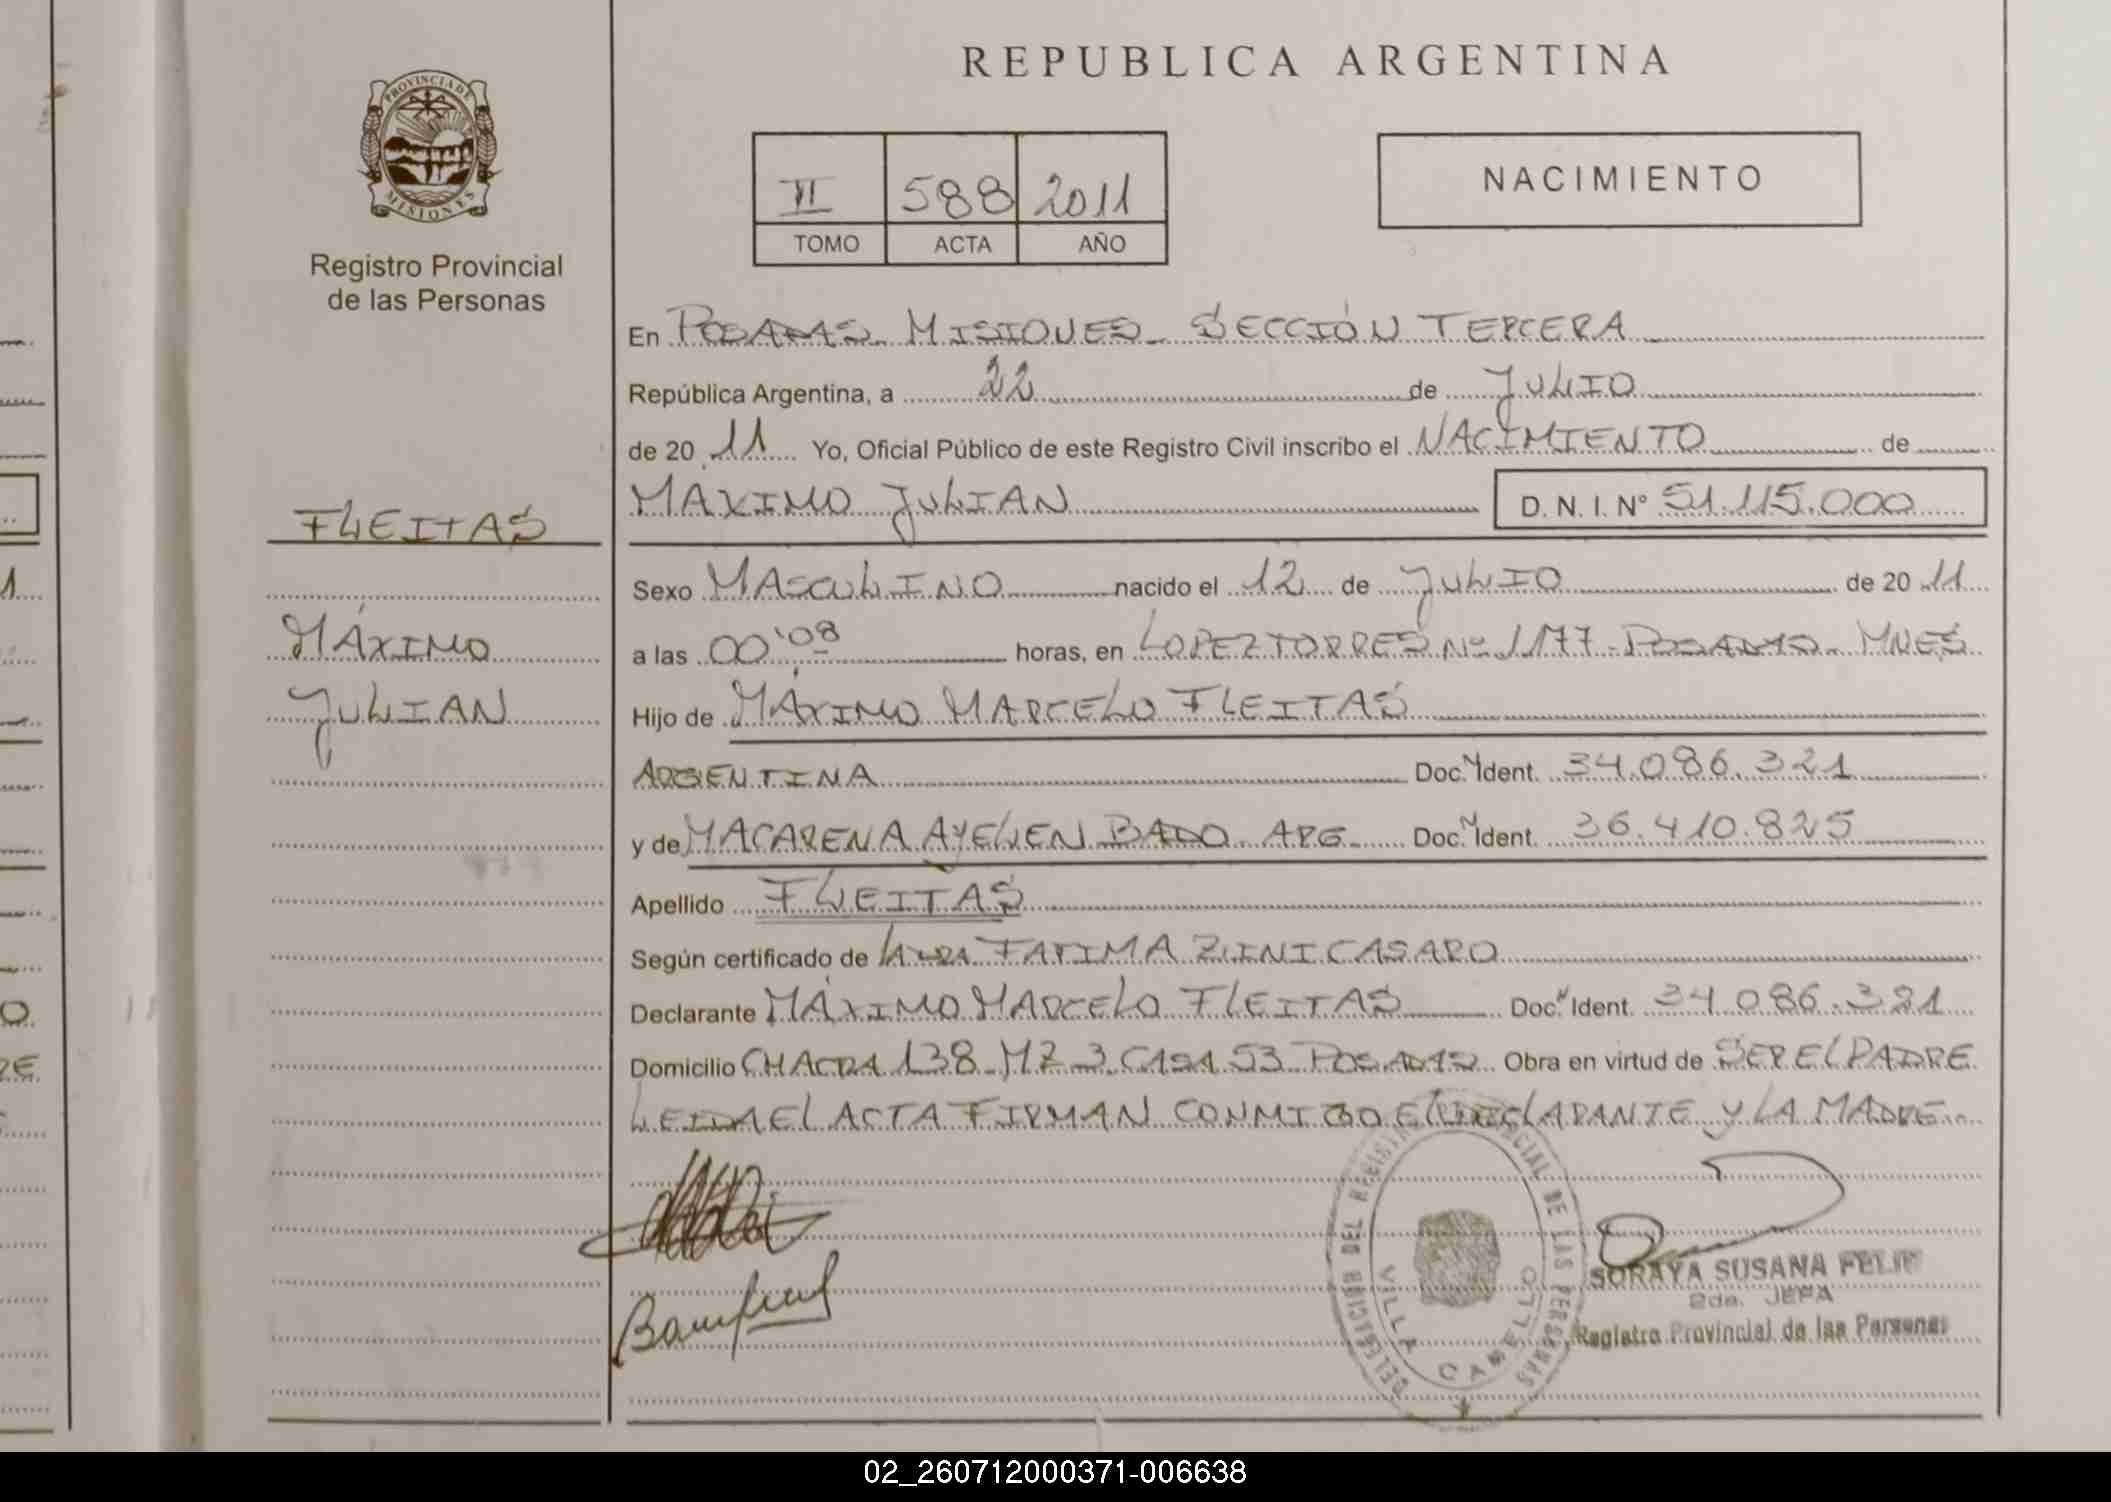 PROVINCIA DE
MISIONES
Registro Provincial
de las Personas
FLEITAS
MÁXIMO
JULIAN
REPUBLICA ARGENTINA
II 588 2011
TOMO ACTA AÑO
NACIMIENTO
En POSADAS MISIONES - SECCIÓN TERCERA
República Argentina, a 22 de JULIO
de 20 11 Yo, Oficial Público de este Registro Civil inscribo el NACIMIENTO de
MAXIMO JULIAN D. N. I. N° 51.115.000
Sexo MASCULINO nacido el 12 de JULIO de 20 11
a las 00:08 horas, en LOPEZ TORRES Nº 1177 - POSADAS - MNES
Hijo de MÁXIMO MARCELO FLEITAS
ARGENTINA Doc. Ident. 34.086.321
y de MACARENA AYELEN BADO - ARG. Doc. Ident. 36.410.825
Apellido FLEITAS
Según certificado de LAURA FATIMA ZINI CASARO
Declarante MÁXIMO MARCELO FLEITAS Doc. Ident. 34.086.321
Domicilio CHACRA 138 - MZ 3 CASA 53 POSADAS Obra en virtud de SER EL PADRE
LEIDA EL ACTA FIRMAN CONMIGO EL DECLARANTE Y LA MADRE
DELEGACION DEL REGISTRO PROVINCIAL DE LAS PERSONAS
VILLA CABELLO
SORAYA SUSANA
2da. JEFA
Registro Provincial de las Personas
02_260712000371-006638